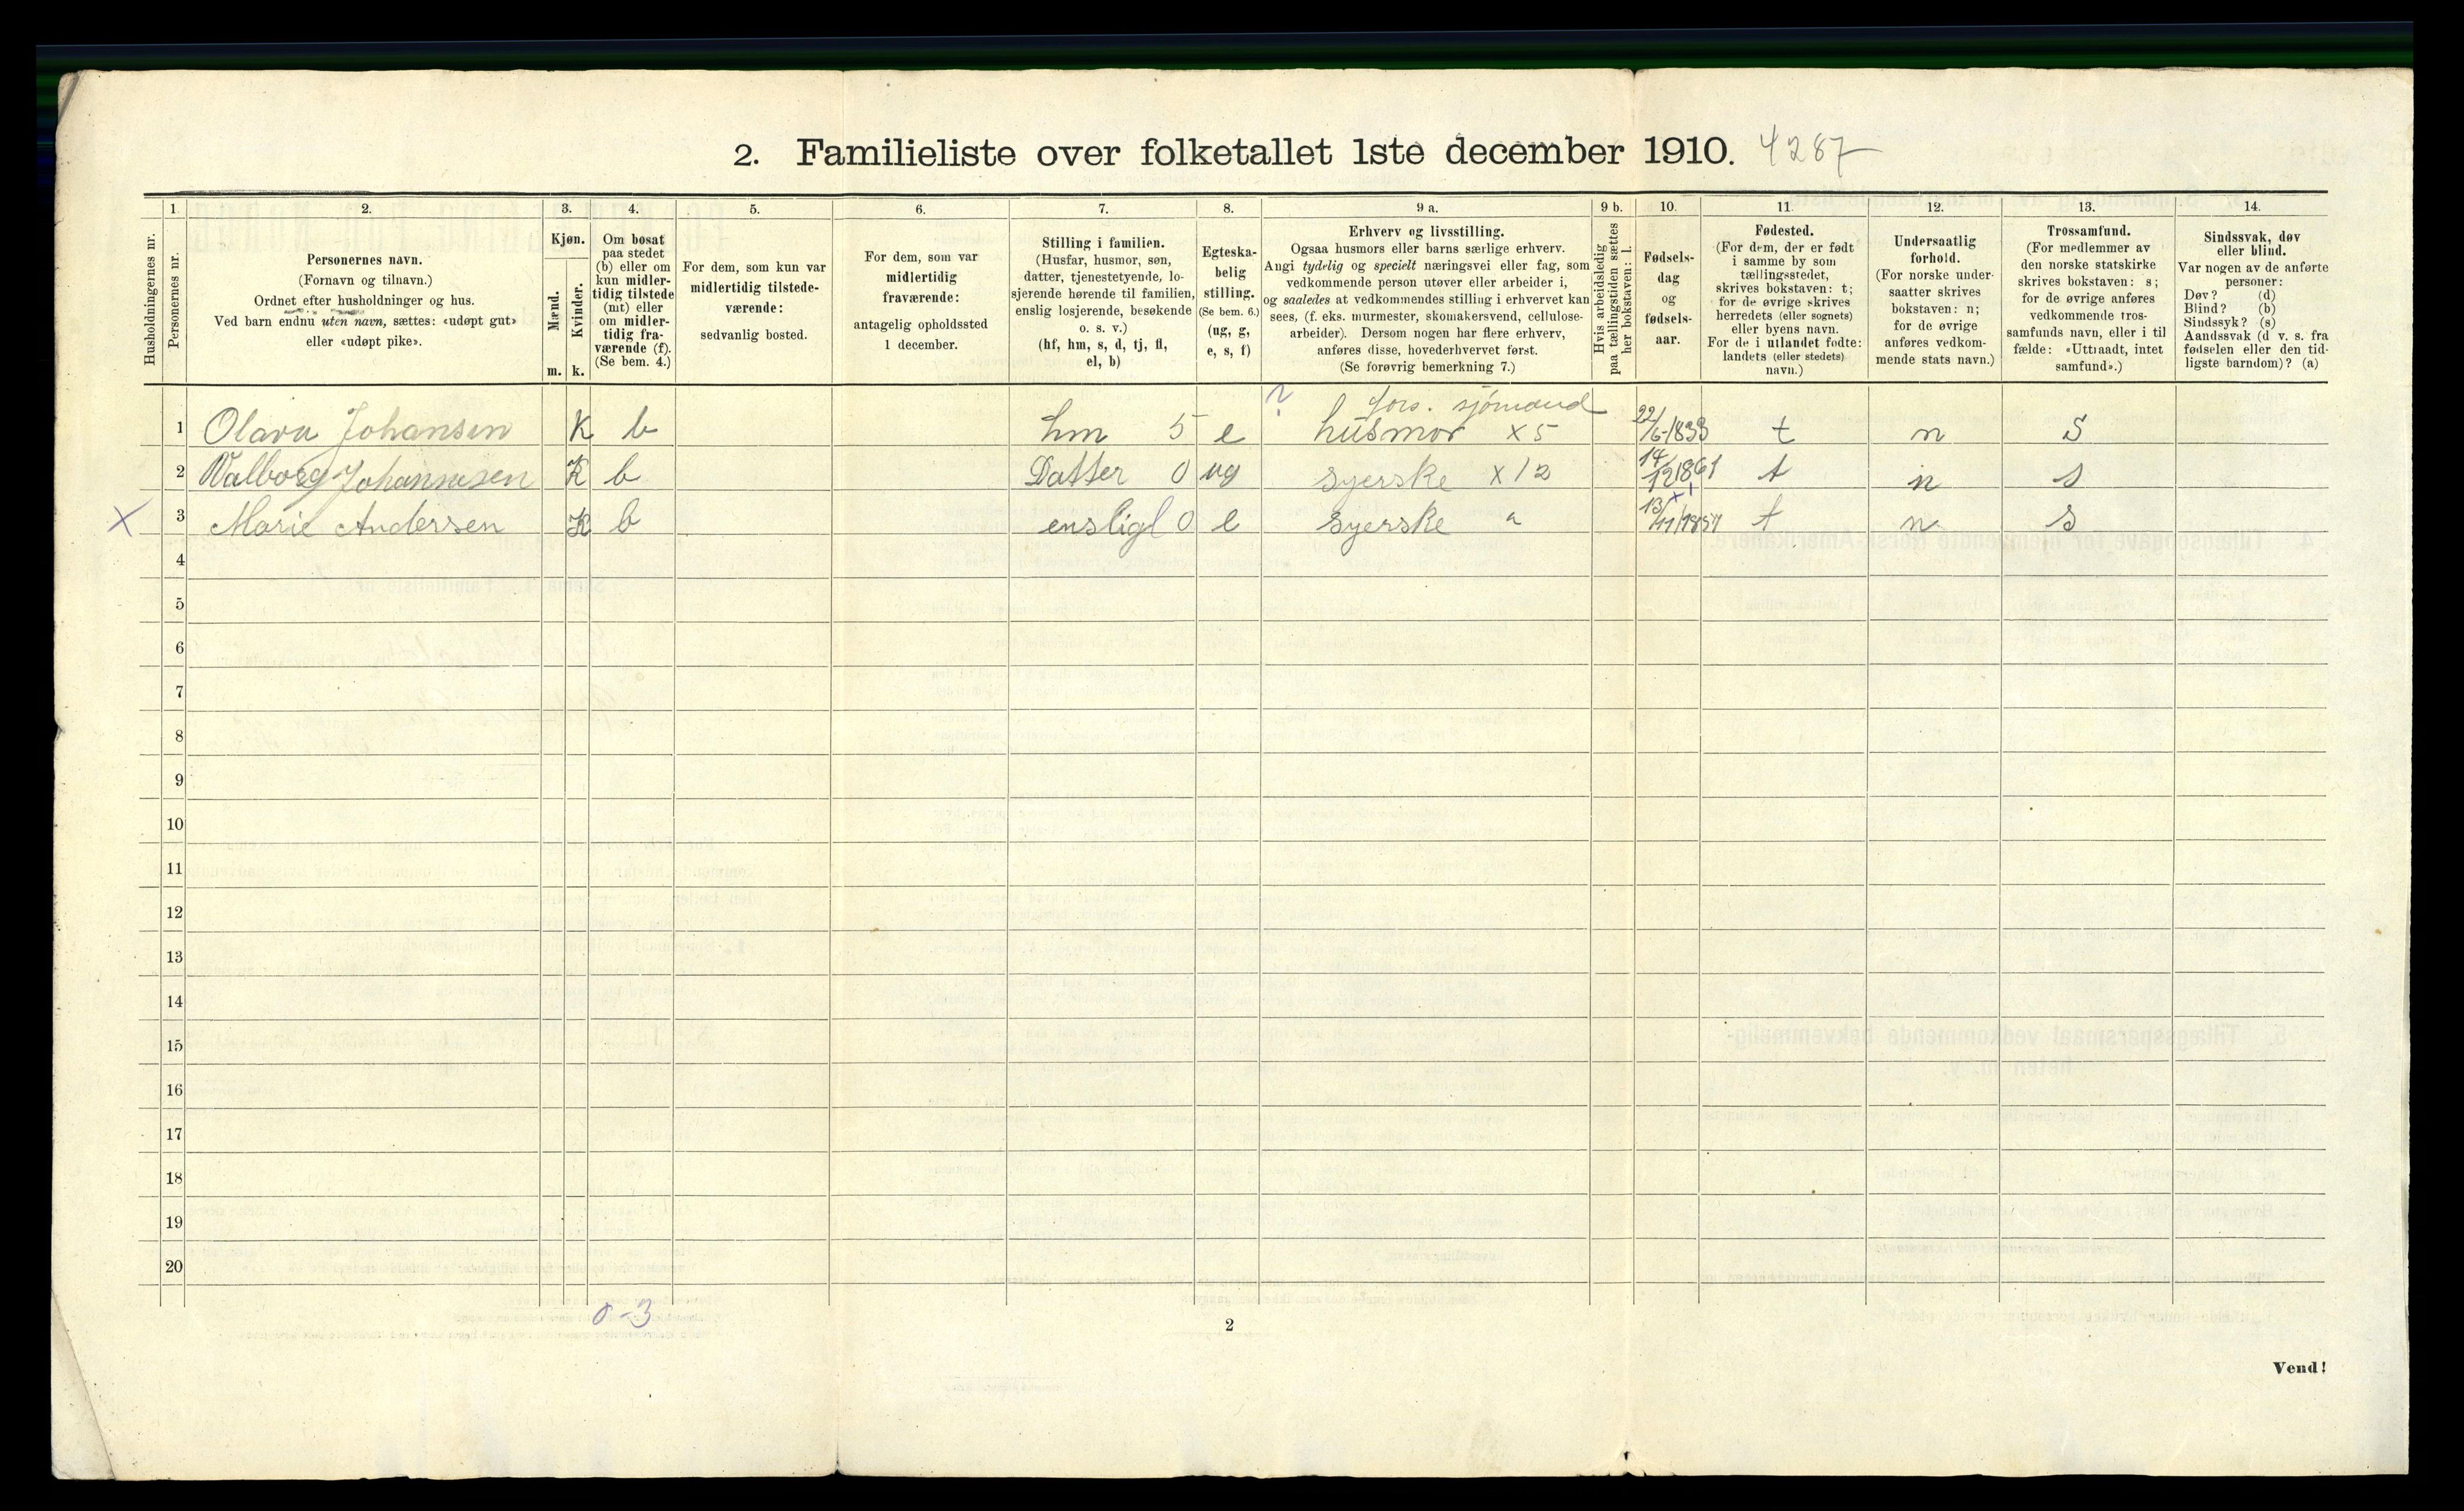 2. Familieliste over folketallet 1ste december 1910. 4287
1. 2. 3. 4. 5. 6. 7. 8. 9 a. 9 b. 10. 11. 12. 13. 14.
Husholdningernes nr.
Personernes nr.
Personernes navn.
(Fornavn og tilnavn.)
Ordnet efter husholdninger og hus.
Ved barn endnu uten navn, sættes: «udøpt gut»
eller «udøpt pike».
Kjøn.
Mænd.
Kvinder.
m. k.
Om bosat
paa stedet
(b) eller om
kun midler-
tidig tilstede
(mt) eller
om midler-
tidig fra-
værende (f).
(Se bem. 4.)
For dem, som kun var
midlertidig tilstede-
værende:
sedvanlig bosted.
For dem, som var
midlertidig
fraværende:
antagelig opholdssted
1 december.
Stilling i familien.
(Husfar, husmor, søn,
datter, tjenestetyende, lo-
sjerende hørende til familien,
enslig losjerende, besøkende
o. s. v.)
(hf, hm, s, d, tj, fl,
el, b)
Egteska-
belig
stilling.
(Se bem. 6.)
(ug, g,
e, s, f)
Erhverv og livsstilling.
Ogsaa husmors eller barns særlige erhverv.
Angi tydelig og specielt næringsvei eller fag, som
vedkommende person utøver eller arbeider i,
og saaledes at vedkommendes stilling i erhvervet kan
sees, (f. eks. murmester, skomakersvend, cellulose-
arbeider). Dersom nogen har flere erhverv,
anføres disse, hovederhvervet først.
(Se forøvrig bemerkning 7.)
Hvis arbeidsledig
paa tællingstiden sættes
her bokstaven: l.
Fødsels-
dag
og
fødsels-
aar.
Fødested.
(For dem, der er født
i samme by som
tællingsstedet,
skrives bokstaven: t;
for de øvrige skrives
herredets (eller sognets)
eller byens navn.
For de i utlandet fødte:
landets (eller stedets)
navn.)
Undersaatlig
forhold.
(For norske under-
saatter skrives
bokstaven: n;
for de øvrige
anføres vedkom-
mende stats navn.)
Trossamfund.
(For medlemmer av
den norske statskirke
skrives bokstaven: s;
for de øvrige anføres
vedkommende tros-
samfunds navn, eller i til-
fælde: «Uttraadt, intet
samfund».)
Sindssvak, døv
eller blind.
Var nogen av de anførte
personer:
Døv? (d)
Blind? (b)
Sindssyk? (s)
Aandssvak (d v. s. fra
fødselen eller den tid-
ligste barndom)? (a)
? fors. sjömand
1 Olava Johansen K b hm 5 e husmor x 5 22/6-1833 t n S
2 Valborg Johannesen K b Datter 0 ug syerske x 12 14/12 1861 t n s
X 3 Marie Andersen K b ensligl 0 e syerske a 13/11 1857 t n s
4
5
6
7
8
9
10
11
12
13
14
15
16
17
18
19
20
0-3
2
Vend!